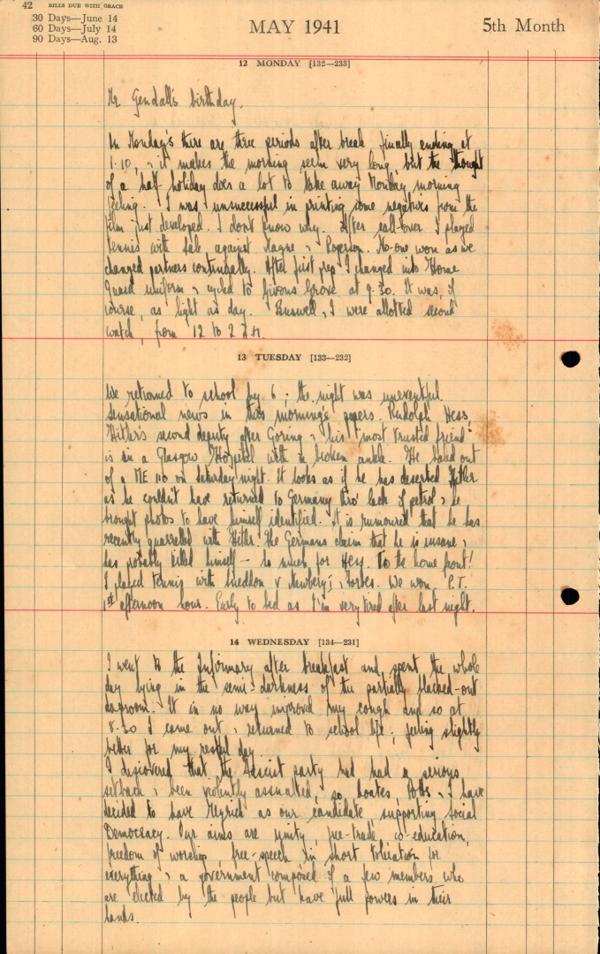 42 BILLS DUE WITH GRACE
30 Days—June 14
60 Days—July 14
90 Days—Aug. 13
MAY 1941
5th Month
12 MONDAY [132—233]
Mr Gendall's birthday.
In Monday's there are three periods after break finally ending at
1.10, & it makes the morning seem very long, but the thought
of a half holiday does a lot to take away Monday morning
feeling. I was unsuccessful in printing some negatives from the
film just developed. I don't know why. After call-over I played
tennis with Sale against Magne & Rogerson. No-one won as we
changed partners continually. After first prep I changed into Home
Guard uniform & cycled to Givons Grove at 9.30. It was, of
course, as light as day. Buswell & I were allotted second
watch, from 12 to 2 a.m.
13 TUESDAY [133—232]
We returned to school by 6; the night was uneventful.
Sensational news in this morning's papers. Rudolph Hess,
Hitler's second deputy after Goring & his "most trusted friend"
is in a Glasgow Hospital with a broken ankle. He baled out
of a ME 110 on Saturday night. It looks as if he has deserted Hitler
as he couldn't have returned to Germany thro' lack of petrol & he
brought photos to have himself identified. It is rumoured that he has
recently quarrelled with Hitler. The Germans claim that he is insane &
has probably killed himself — so much for Hess. To the home front!
I played tennis with Sneddon v Newbery & Forbes. We won. P.T.
1st afternoon hour. Early to bed as I'm very tired after last night.
14 WEDNESDAY [134—231]
I went to the Infirmary after breakfast and spent the whole
day lying in the semi-darkness of the partially blacked-out
dayroom. It in no way improved my cough and so at
8.30 I came out & returned to school life; feeling slightly
better for my restful day.
I discovered that the Fascist party had had a serious
setback & been violently assaulted, so Coates, Potts & I have
decided to have Meyrick as our candidate supporting Social
Democracy. Our aims are unity, free-trade, co-education,
freedom of worship, free-speech in short toleration for
everything & a government composed of a few members who
are elected by the people but have full powers in their
hands.